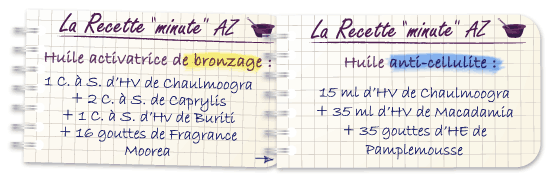 La Recette "minute" AZ
Huile activatrice de bronzage :
1 C. à S. d'HV de Chaulmoogra
+ 2 C. à S. de Caprylis
+ 1 C. à S. d'HV de Buriti
+ 16 gouttes de Fragrance
Moorea
La Recette "minute" AZ
Huile anti-cellulite :
15 ml d'HV de Chaulmoogra
+ 35 ml d'HV de Macadamia
+ 35 gouttes d'HE de
Pamplemousse